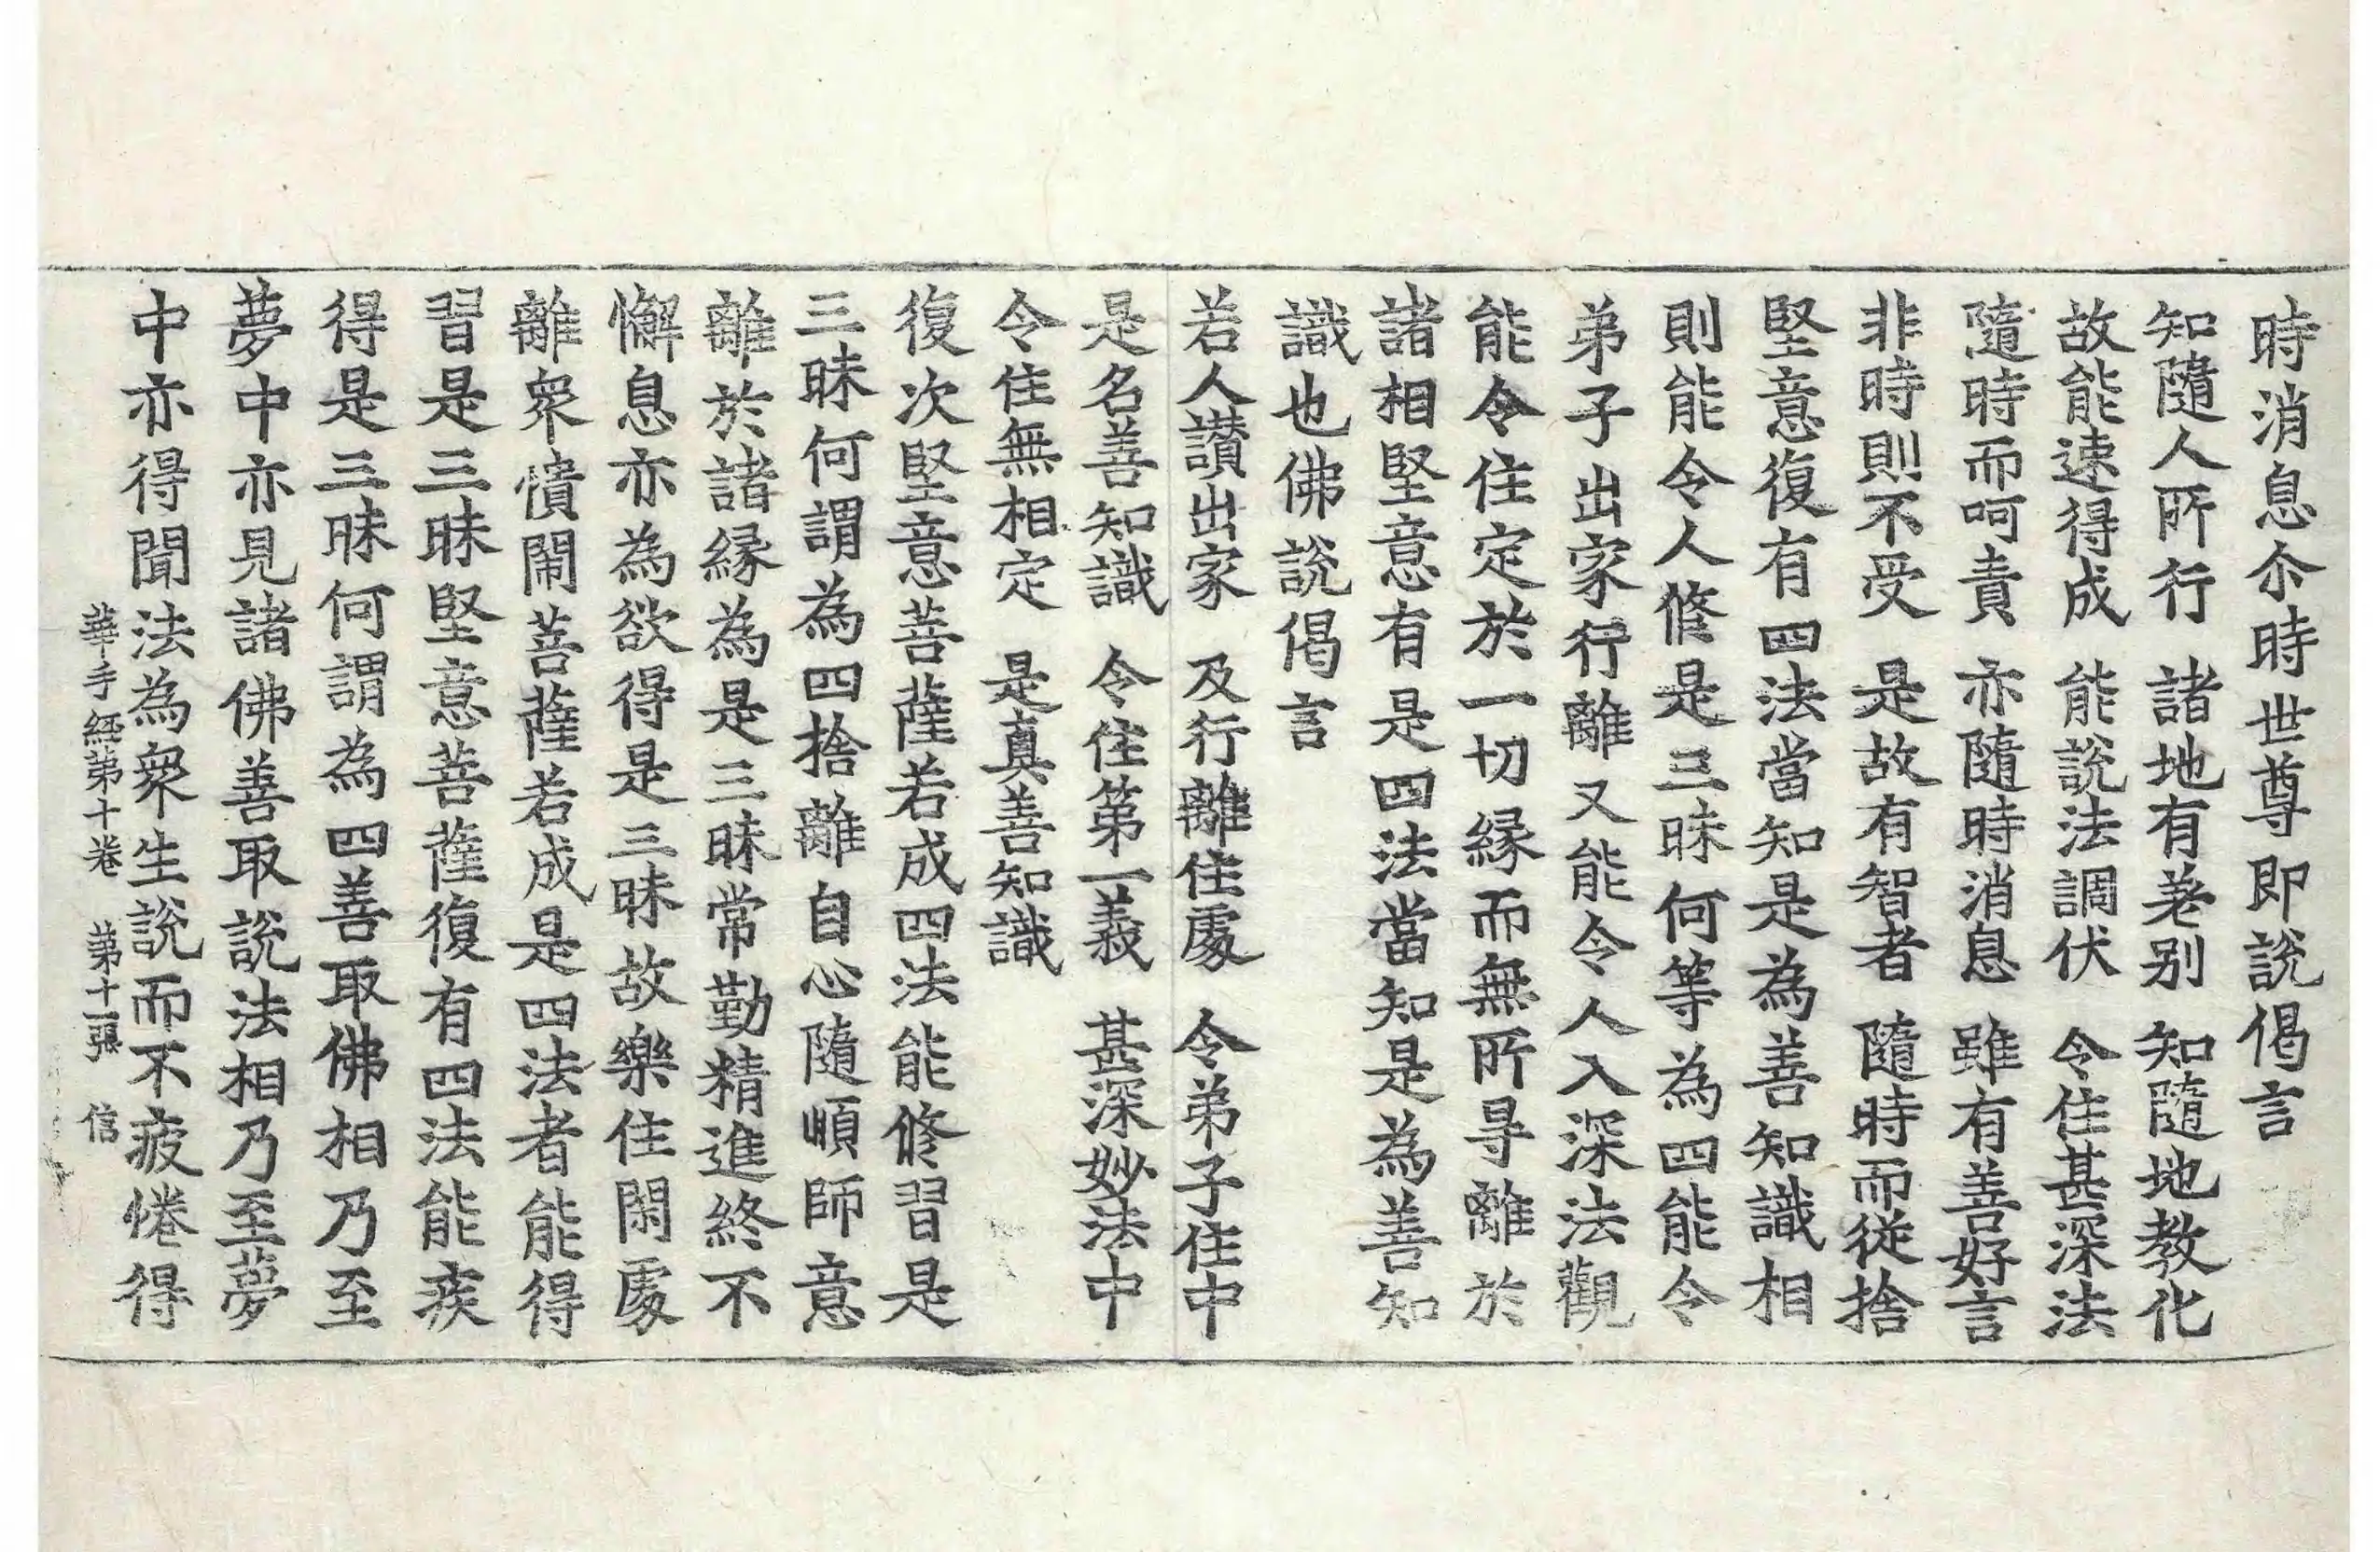 時消息尒時世尊即說偈言
知隨人所行　諸地有差别　知隨地教化
故能速得成　能說法調伏　令住甚深法
隨時而呵責　亦隨時消息　雖有善好言
非時則不受　是故有智者　隨時而從捨
堅意復有四法當知是為善知識相
則能令人修是三昧何等為四能令
弟子出家行離又能令人入深法觀
能令住定於一切縁而無所㝵離於
諸相堅意有是四法當知是為善知
識也佛說偈言
若人讃出家　及行離住處　令弟子住中
是名善知識　令住第一義　甚深妙法中
令住無相定　是真善知識
復次堅意菩薩若成四法能修習是
三昧何謂為四捨離自心隨順師意
離於諸縁為是三昧常勤精進終不
懈息亦為欲得是三昧故樂住閑處
離衆憒閙菩薩若成是四法者能得
習是三昧堅意菩薩復有四法能疾
得是三昧何謂為四善取佛相乃至
夢中亦見諸佛善取說法相乃至夢
中亦得聞法為衆生說而不疲惓得
華手經第十卷　第十一張　信